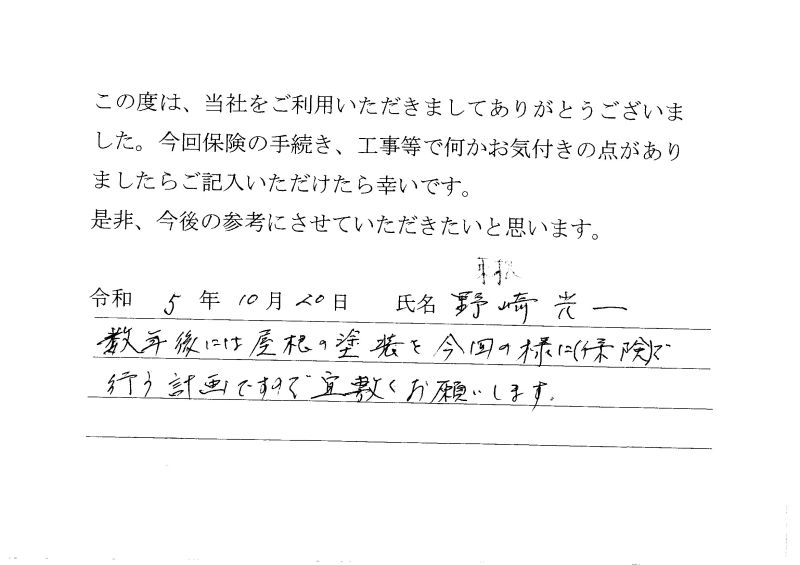 この度は、当社をご利用いただきましてありがとうございま
した。今回保険の手続き、工事等で何かお気付きの点があり
ましたらご記入いただけたら幸いです。
是非、今後の参考にさせていただきたいと思います。
令和 5 年 10 月 20 日 氏名 野崎 光一
数年後には屋根の塗装を今回の様に(保険)で
行う計画ですので宜敷くお願いします。